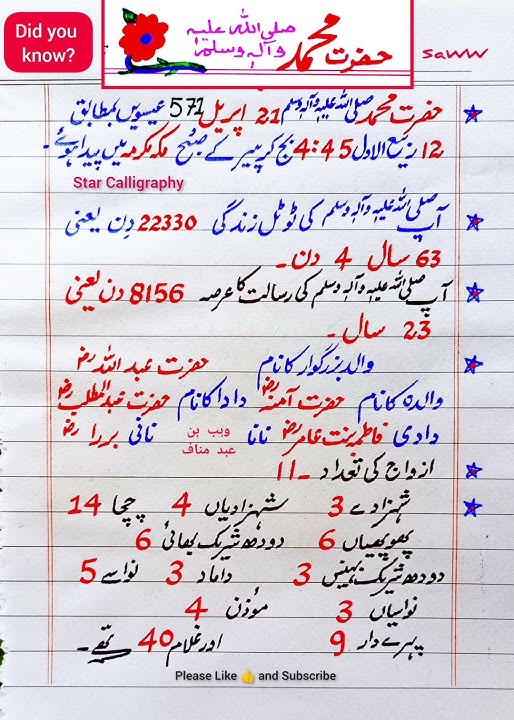 Did you
know?
صلی اللہ علیہ
حضرت محمد وآلہ وسلم
saww
حضرت محمد صلی اللہ علیہ وآلہ وسلم 21 اپریل 571 عیسویں بمطابق
12 ربیع الاول 4:45 بج کر پیر کے صبح مکہ مکرمہ میں پیدا ہوئے۔
Star Calligraphy
آپ صلی اللہ علیہ وآلہ وسلم کی ٹوٹل زندگی 22330 دن یعنی
63 سال 4 دن۔
آپ صلی اللہ علیہ وآلہ وسلم کی رسالت کا عرصہ 8156 دن یعنی
23 سال۔
والد بزرگوار کا نام حضرت عبد اللہ رض
والدہ کا نام حضرت آمنہ رض دادا کا نام حضرت عبدالمطلب رض
دادی فاطمہ بنت عامر رض نانا ویب بن عبد مناف نانی بررا رض
ازواج کی تعداد ۔11
شہزادے 3 شہزادیاں 4 چچا 14
پھوپھیاں 6 دودھ شریک بھائی 6
دودھ شریک بہنیں 3 داماد 3 نواسے 5
نواسیاں 3 موذن 4
پہرے دار 9 اور غلام 40 تھے۔
Please Like 👍 and Subscribe